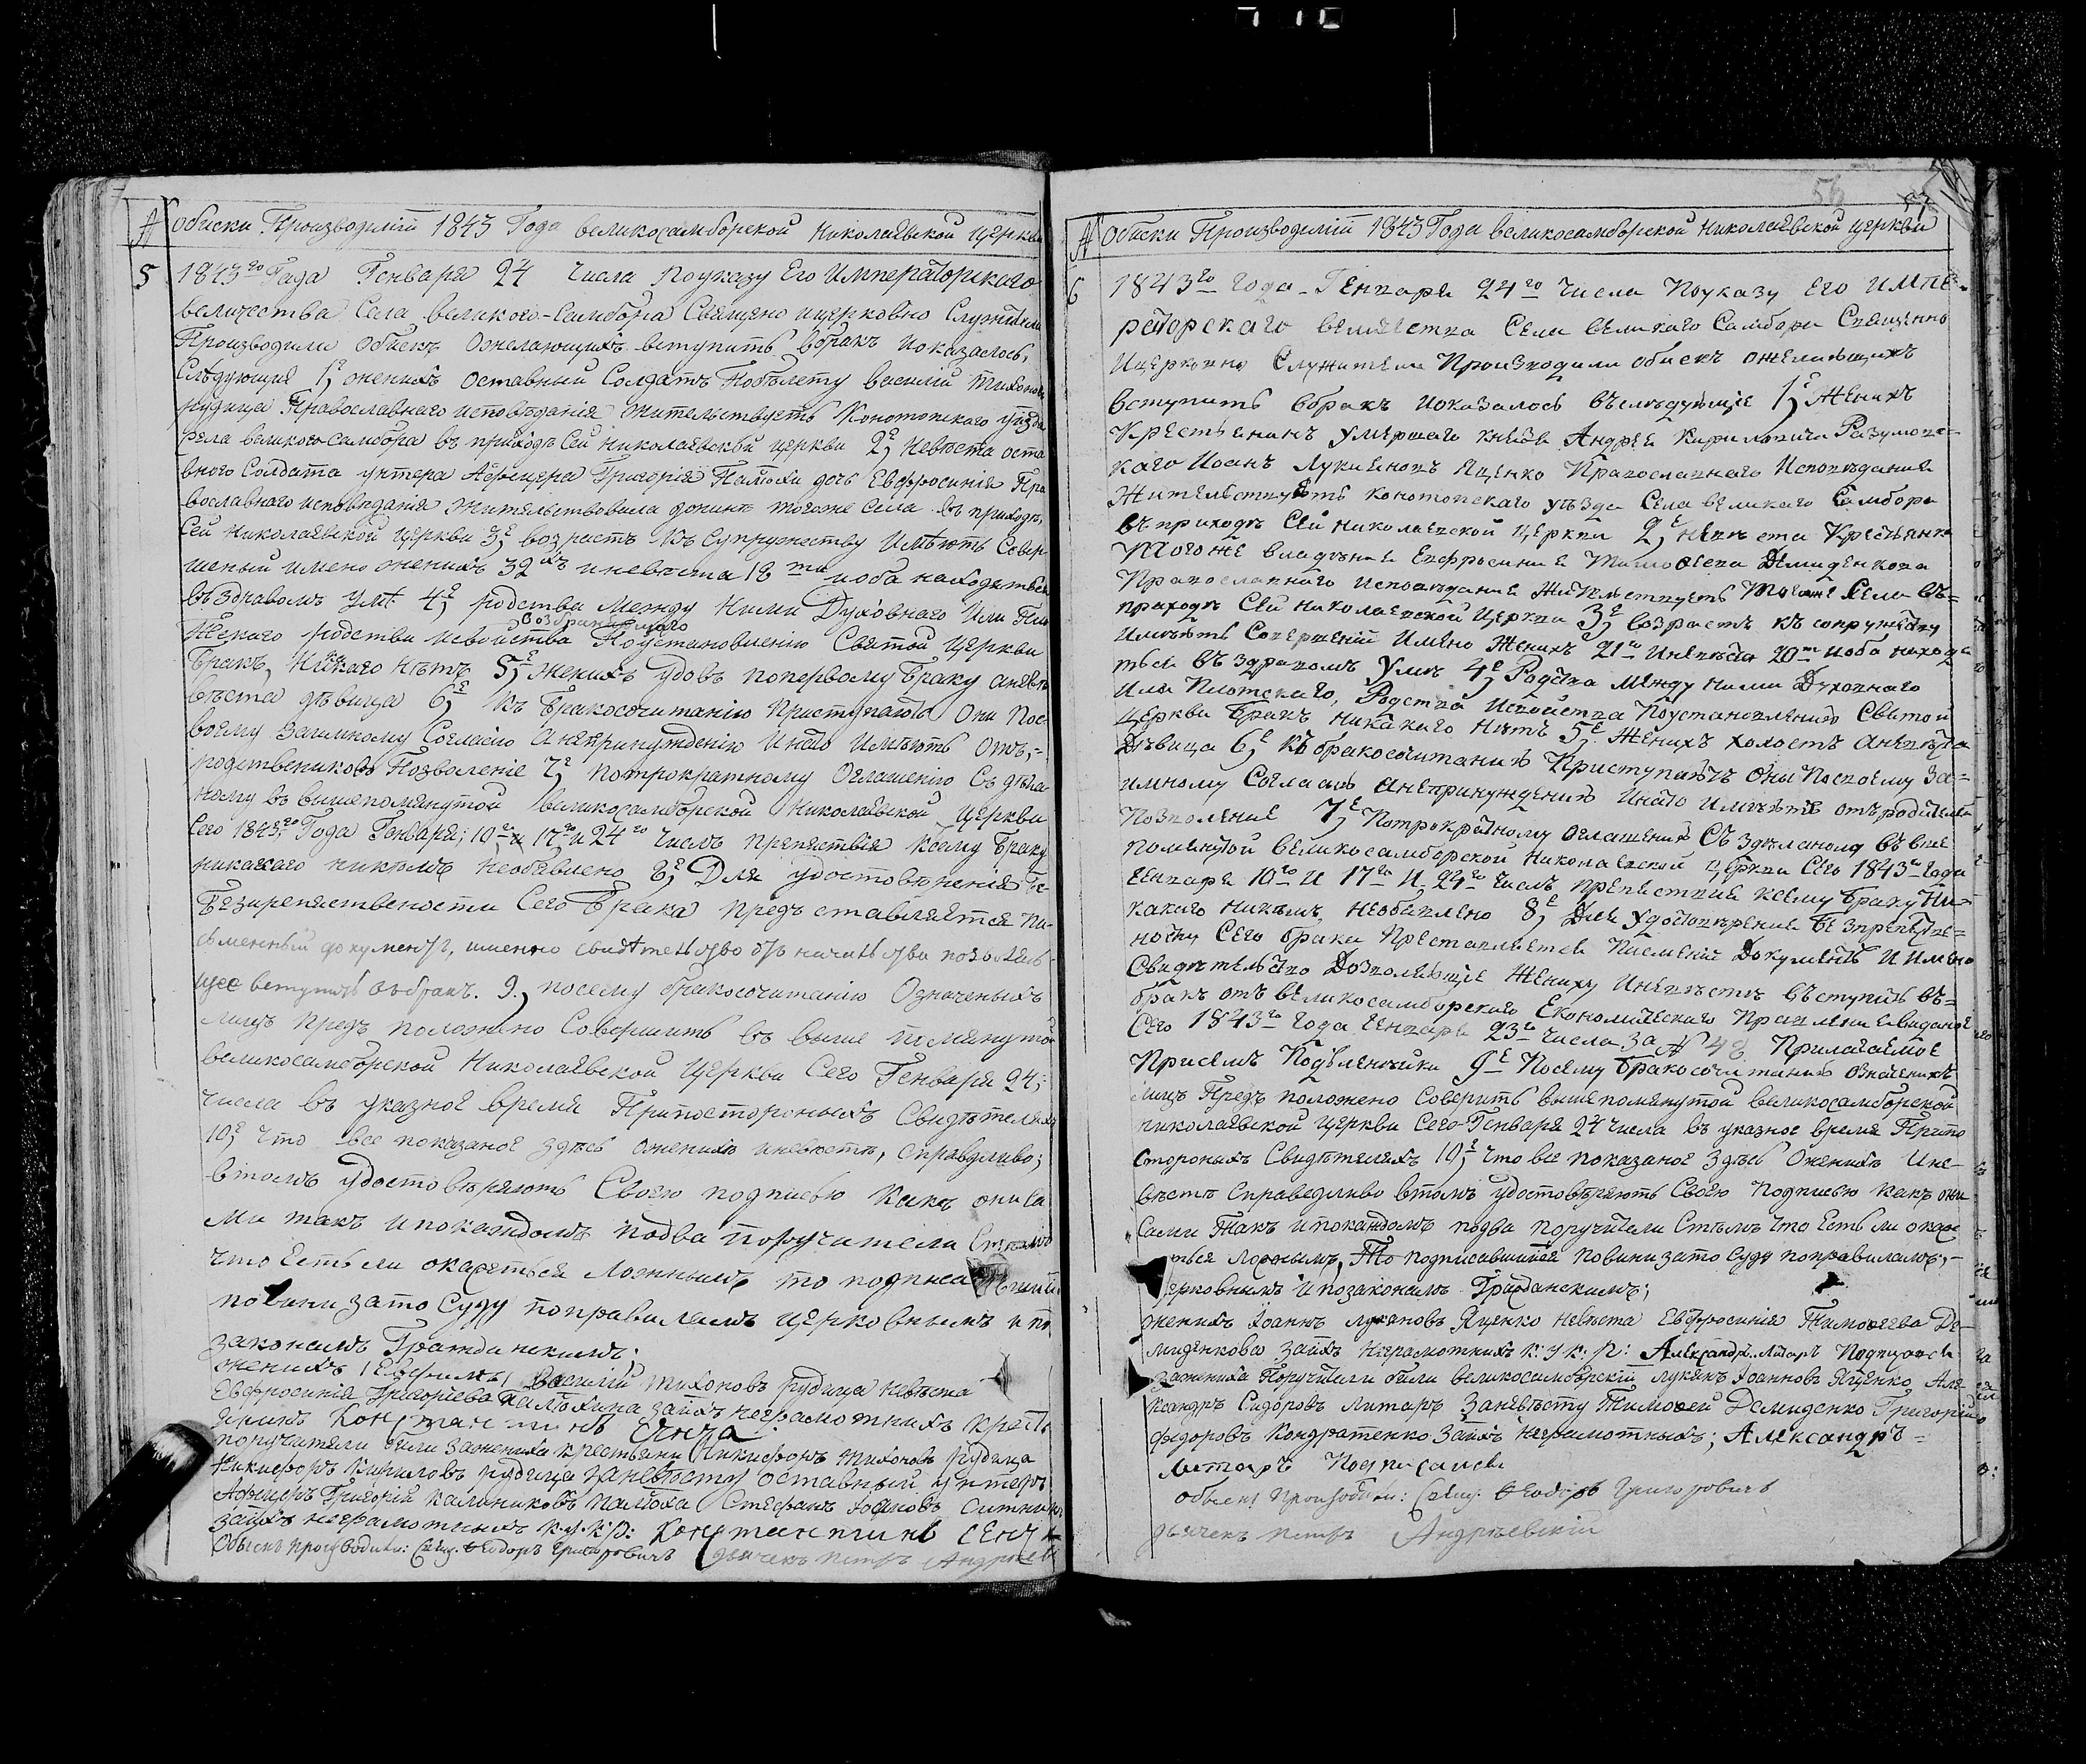 № Обиски Производиміи 1843 Года великосамборской Николаевской церкви
5 1843го Года Генваря 24 числа По указу Его Императорскаго
величества Села великого-Самбора Священо ицерковно Служители
Производили обискъ Ожелающихъ вступить вбракъ иоказалось,
Слѣдующия 1е, женихъ оставный Солдатъ Побѣлету василій тихоновъ
рудица Православнаго исповѣданія жительствуетъ Конотопскаго уѣзда
села великого самбора въ приходѣ Сей николаевской церкви 2е, Невѣста оста
вного Солдата унтера Афицера Григорія Палюхи дочь Евфросинія Пра
вославнаго исповѣданія жительствовала донинѣ тогоже села въ приходѣ
Сей Николаевской церкви 3е, возрастъ Къ Супружеству Имѣютъ Совер
шеный имено женихъ 32хъ иневѣста 18ти иоба находятся
въ здравомъ умѣ 4е, родства Между Ними Духовнаго Или Пло
возбраняющаго
тскаго родства исвойства Поустановлению Святой Церкви
бракъ, Никакаго нѣтъ 5е, женихъ удовъ поперьвому браку аневѣ
вѣста дѣвица 6е, Къ бракосочитанію Приступаютъ Они Посво
воему заимному Согласію Анепринуждению Инато Имѣютъ Отъ,=
родствениковъ Позволеніе 7е, потрократному Оглашению Съ дѣла
ному въ вышепомянутой великосамборской Николаевской Церкви
Сего 1843го Года Генваря; 10го и 17го и 24го числъ препятствія Ксему браку
никакаго никѣмъ необявлено 8е, Для удостовѣренія Бе
безпрепятствености Сего брака предъставляется Пи-
сьменный документъ, именно свидѣтельство отъ начальства позволяю
щее вступить въ бракъ. 9., посему бракосочитанию Означеныхъ
лицъ предъ положено Совершить въ выше помянутой
великосамборской Николаевской Церкви Сего Генваря 24;
числа въ указное время Припостороныхъ Свидѣтеляхъ
10е, что все показаное здѣсь ожених иневѣстѣ, справедливо;
втомъ удостовѣряютъ Своею подписью какъ они са
ми такъ ипокаждомъ подва поручители Стѣмъ
что Естьли окажеться ложнымъ то подписавшийся
повини зато Суду поправиламъ церковнымъ и по
законамъ Гражданскимъ;
женихъ василий тихоновъ рудица невѣста
Евфросинія Григориева Палюхина заихъ неграмотныхъ кресть
янинъ Константинъ Сенча
поручители были зажениха крестьяни Никифоръ тихоновъ рудица
Никифоръ Кириловъ рудица заневѣсту оставный унтеръ
Афицеръ Григорій калиниковъ палюха Стефанъ Іоановъ Ситникъ
заихъ неграмотныхъ К.У.К.Р: Константинъ Сенча
Обыскъ производили: Свящ. Ѳеодоръ Григоровичъ дьячекъ петръ Андріевс
58
57
№ Обиски Производиміи 1843 Года великосамборской Николаевской церкви
6 1843го года Генваря 24го числа Поуказу Его Импе-
раторскаго величества Села великаго Самбора Священно
ицерковно Служители Производили обискъ ожелающихъ
вступить вбракъ иоказалось въслѣдующіе 1е, Женихъ
Крестьянинъ умершаго князя Андрея Кириловича Разумовс=
каго Иоанъ Лукияновъ Яценко Православнаго Исповѣдания
Жительствуетъ конотопскаго уѣзда Села великаго Самбора
въприходѣ Сей николаевской церкви 2е, невѣста Крестьянка
тогоже владѣния Евфросиния Тимофеева Демиденкова
Православнаго исповѣдание Жительствуетъ тогоже Села въ=
приходѣ Сей николаевской церкви 3е, возрастъ къ сопружеству
имѣютъ Совершений Имено Женихъ 21го Иневѣста 20ти иоба находя
ться въ здравомъ умѣ 4е, Родства между ними Духовнаго
или Плотскаго, Родства Исвойства Поустановлению Святой
церкви бракъ никакаго нѣтъ 5е, Женихъ холостъ Аневѣста
Дѣвица 6е, къ бракосочитанию Приступаютъ Они Посвоему За=
имному Согласию Анепринуждению Инато имѣютъ отъ родителей
позволение 7е, Потрократному оглашению Съ здѣланому въ выше
помянутой великосамборской николаевской церкви Сего 1843го года
генваря 10го и 17го и 24го числъ препятствие ксему браку Ни=
какаго никѣмъ, необявлено 8е, Для удостовѣрение Безпрепятстве=
ности Сего брака Преставляется Писмение Документъ и имено
Свидѣтельство Дозволяющіе Жениху Иневѣстѣ въступить въ=
бракъ отъ великосамборскаго Економическаго Правления виданое
Сего 1843го года генваря 23го числа За № 48 Прилагаемое
Присемъ Подлѣнники 9е Посему бракосочитанию означенихъ
лицъ Предъ положено Соверить вышепомянутой великосамборской
николаевской церкви Сего Генваря 24 числа въ указное время Припо
стороныхъ Свидѣтеляхъ 10е, что все показаное здѣсь Оженихѣ Ине-
вѣстѣ Справедливо втомъ удостовѣряютъ Своею Подписью какъ они
Сами такъ ипокаждомъ подва поручители Стѣмъ что Естьли окаже
ться ложнымъ, То подписавшийся Повини зато Суду поправиламъ,-
церковнымъ Ипозаконамъ Гражданскимъ;
женихъ Іоаннъ лукяновъ Яценко невѣста Евфросинія Тимофеева Де-
миденкова Заихъ Неграмотныхъ К: У К: Р: Александръ Литаръ Подписался
Зажениха Поручители были великосамборскій лукянъ Іоанновъ Яценко Але
ксандръ Сидоровъ литаръ Заневѣсту Тимофей Демиденко Григорій
федоровъ Кондратенко Заихъ неграмотныхъ; Александръ =
литаръ Подписался
обыскъ производили: Свящ. Ѳеодоръ Григоровичъ
дьячекъ петръ Андріевскій